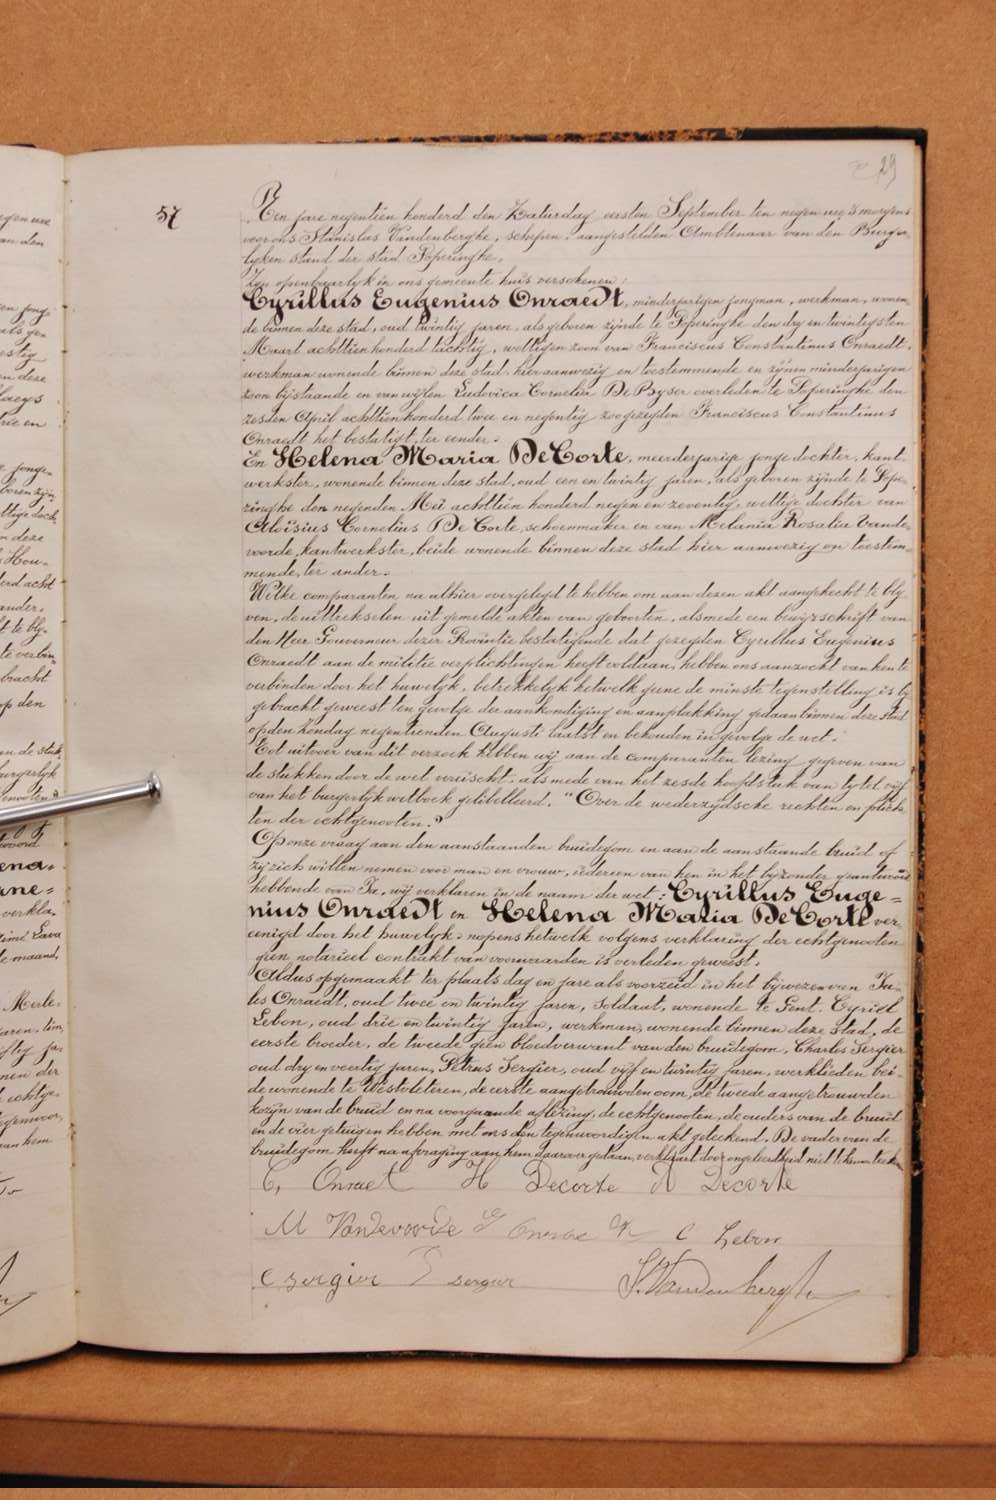 29
57
Ten jare negentien honderd den Zaturdag eersten September ten negen ure 's morgens
voor ons Stanislas Vandenberghe, schepen, aangestelden Ambtenaar van den Burger-
lyken stand der stad Poperinghe,
Zyn openbaarlyk in ons gemeente huis verschenen:
Cyrillus Eugenius Onraedt, minderjarigen jongman, werkman, wonen-
de binnen deze stad, oud twintig jaren, als geboren zijnde te Poperinghe den dry en twintigsten
Maart achttien honderd tachtig, wettigen zoon van Franciscus Constantinus Onraedt,
werkman wonende binnen deze stad, hier aanwezig en toestemmende en zijnen minderjarigen
zoon bijstaande en van wijlen Ludovica Cornelia De Byser overleden te Poperinghe den
zesden April achttien honderd twee en negentig zoo gezegden Franciscus Constantinus
Onraedt het bestatigt, ter eender.
En Helena Maria De Corte, meerderjarige jonge dochter, kant-
werkster, wonende binnen deze stad, oud een en twintig jaren, als geboren zijnde te Pope-
ringhe den negenden Mei achttien honderd negen en zeventig, wettige dochter van
Aloïsius Cornelius De Corte, schoenmaker en van Melania Rosalia Vande-
voorde, kantwerkster, beide wonende binnen deze stad hier aanwezig en toestem-
mende, ter ander.
Welke comparanten na alhier overgelegd te hebben om aan dezen akt aangehecht te bly-
ven, de uittreksels uit gemelde akten van geboorten, alsmede een bewijsschrift van
den Heer Gouverneur dezer Provintie bestatigende dat gezegden Cyrillus Eugenius
Onraedt aan de militie verplichtingen heeft voldaan, hebben ons aanzocht van hen te
verbinden door het huwelyk, betrekkelyk hetwelk geene de minste tegenstelling is by
gebracht geweest ten gevolge der aankondiging en aanplakking gedaan binnen deze stad
op den Zondag negentienden Augusti laatst en behouden in gevolge de wet.
Tot uitvoer van dit verzoek hebben wij aan de comparanten lezing gegeven van
de stukken door de wet vereischt, alsmede van het zesde hoofdstuk van tytel vijf
van het burgerlyk wetboek gelibelleerd. "Over de wederzijdsche rechten en plich-
ten der echtgenooten."
Op onze vraag aan den aanstaanden bruidegom en aan de aanstaande bruid of
zij zich willen nemen voor man en vrouw, iedereen van hen in het byzonder geantwoord
hebbende van Ja, wij verklaren in de naam der wet: Cyrillus Euge=
nius Onraedt en Helena Maria De Corte ver-
eenigd door het huwelyk; nopens hetwelk volgens verklaring der echtgenooten
geen notarieel contrakt van voorwaarden is verleden geweest.
Aldus opgemaakt ter plaats dag en jare als voorzeid in het bijwezen van Ju-
les Onraedt, oud twee en twintig jaren, soldaat, wonende te Gent. Cyriel
Lebon, oud drie en twintig jaren, werkman, wonende binnen deze stad, de
eerste broeder, de tweede geen bloedverwant van den bruidegom, Charles Sergier
oud dry en veertig jaren, Petrus Sergier, oud vijf en twintig jaren, werklieden bei-
de wonende te Westvleteren, de eerste aangetrouwden oom, de tweede aangetrouwden
kozyn van de bruid en na voorgaande aflezing, de echtgenooten, de ouders van de bruid
en de vier getuigen hebben met ons den tegenwoordigen akt geteekend. De vader van de
bruidegom heeft na afvraging aan hem daarover gedaan, verklaart door ongeleerdheid niet te kunnen teeken
C, Onraet H Decorte A Decorte
M Vandevoorde C Lebon
C sergier sergier S. Vandenberghe